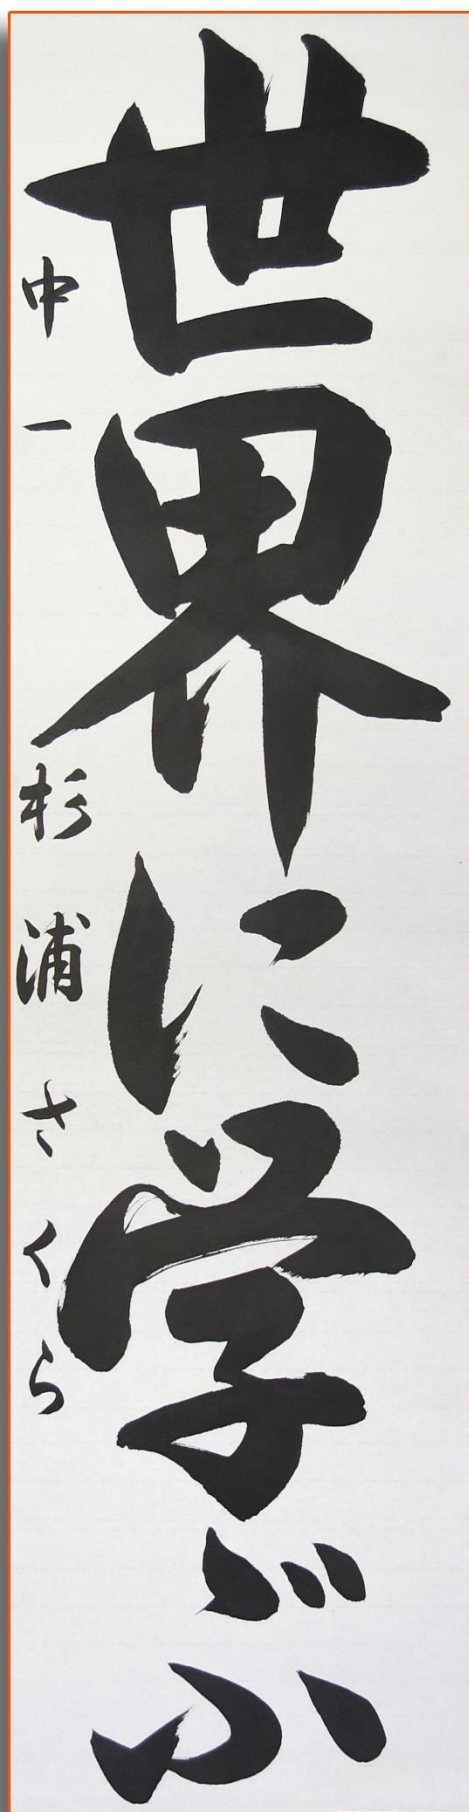 世界に学ぶ
中一 杉浦さくら